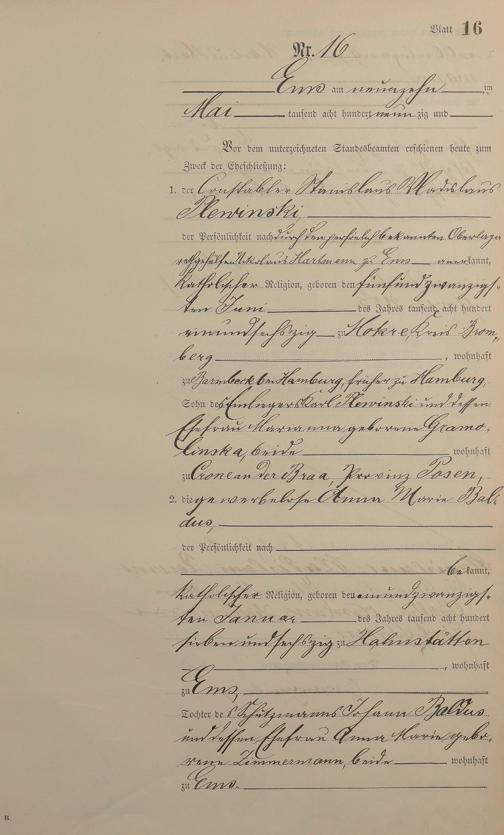 Blatt 16
Nr. 16
Ems am neunzehn ten
Mai tausend acht hundert neunzig und
Vor dem unterzeichneten Standesbeamten erschienen heute zum
Zweck der Eheschließung:
1. der Constabler Stanislaus Wladislaus
Plewinski,
der Persönlichkeit nach durch den persönlich bekannten
Nikolaus Hartmann zu Ems anerkannt,
katholischer Religion, geboren den fünfundzwanzigs-
ten Juni des Jahres tausend acht hundert
einundsechszig zu Mokre, Kreis Brom-
berg, wohnhaft
zu Barmbeck bei Hamburg, früher zu Hamburg,
Sohn des Einliegers Karl Plewinski und dessen
Ehefrau Marianna geborene Gramo-
linska, beide wohnhaft
zu Crone an der Braa, Provinz Posen,
2. die gewerbelose Anna Marie Bal-
dus,
der Persönlichkeit nach
bekannt,
katholischer Religion, geboren den einundzwanzigs-
ten Januar des Jahres tausend acht hundert
siebenundsechszig zu Hahnstätten
, wohnhaft
zu Ems,
Tochter des Schutzmanns Johann Baldus
und dessen Ehefrau Anna Marie gebo-
rene Zimmermann, beide wohnhaft
zu Ems.
B.